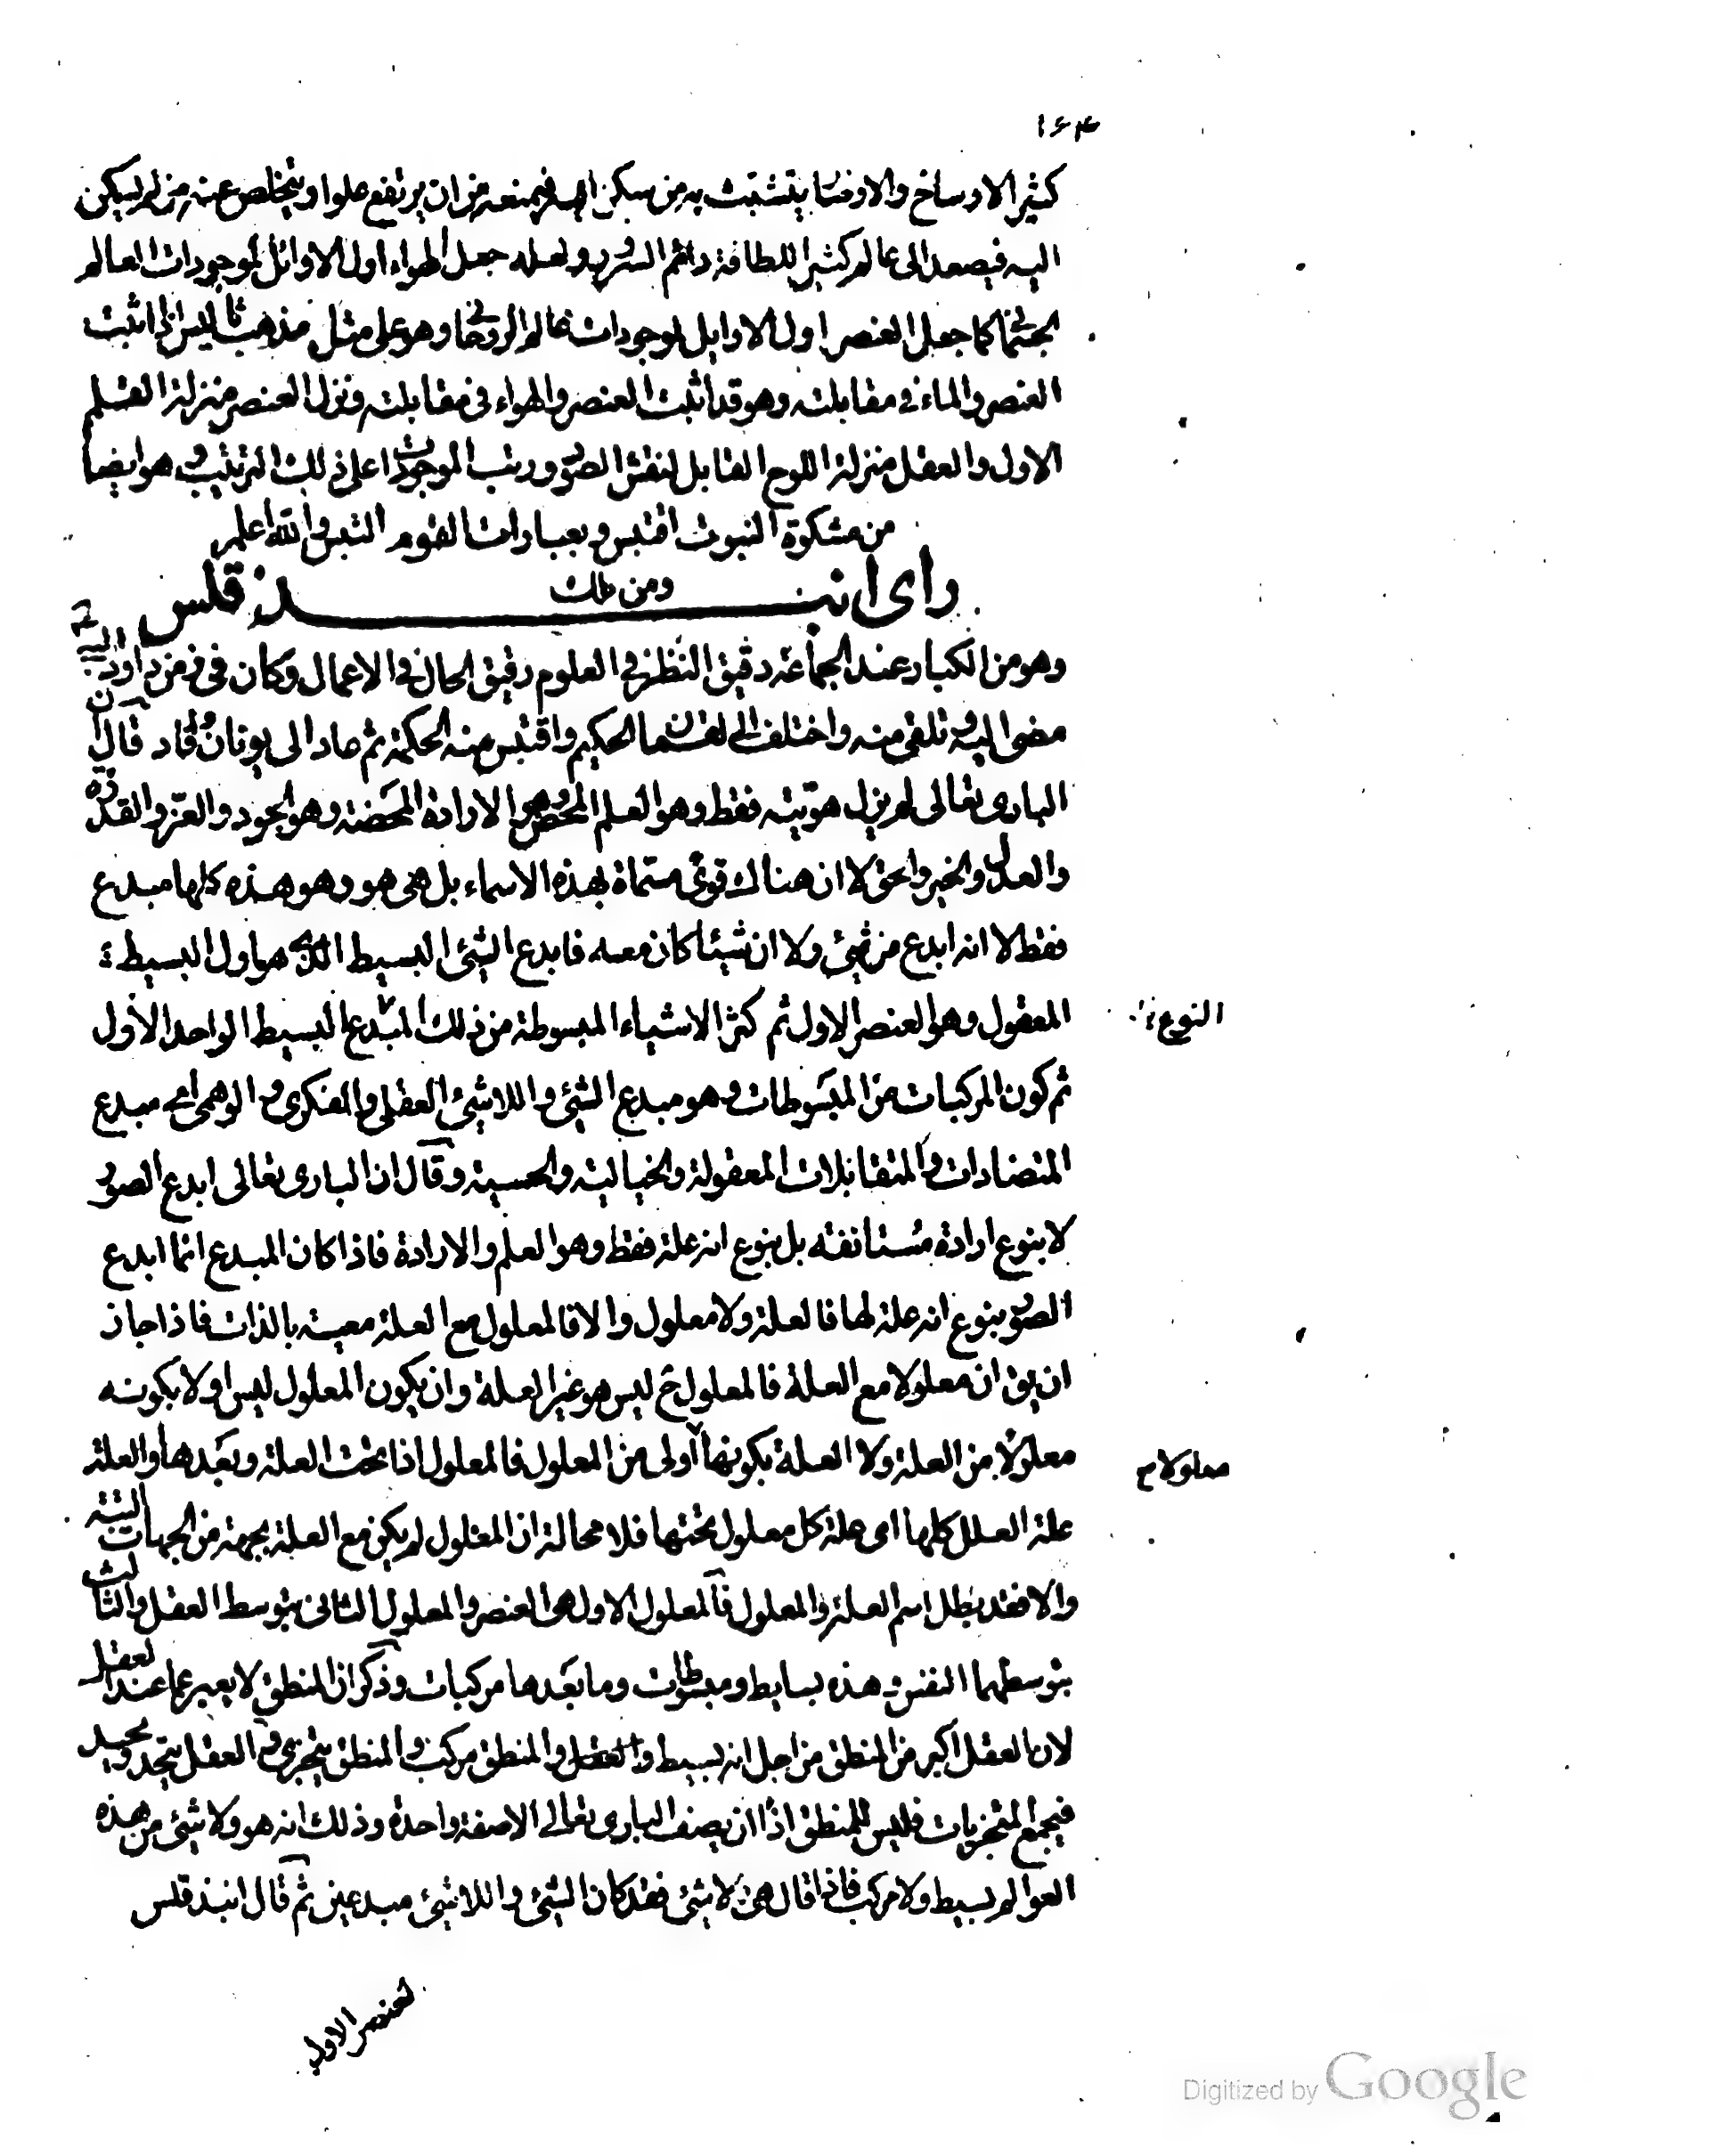 ١٦٣
كثير الاوساخ والاوضا يتشبث به من سكن اليه فيمنعه من ان يرتفع علوا ويتخلص عنه من لم يسكن
اليه فيصعد الى عالم كثير اللطافة دائم السرور ولعله جعل الهواء اول الاوائل لموجودات العالم
الجثماني كما جعل العنصر اول الاوايل لموجودات عالم الروحاني وهو على مثل مذهب ثاليس اذ اثبت
العنصر والماء فى مقابلته وهو قد اثبت العنصر والهواء فى مقابلته ونزل العنصر منزلة القلم
الاول والعقل منزلة اللوح القابل لنقش الصور ورتب الموجودات على ذلك الترتيب وهو ايضا
من مشكوة النبوت اقتبس وبعبارات القوم التبس والله اعلم
راى انبــــــذقلس
ومن ذلك
وهو من الكبار عند الجماعة دقيق النظر فى العلوم رقيق الحال فى الاعمال وكان فى زمن داود النبى
مضى اليه وتلقى منه واختلف الى لقمان الحكيم واقتبس منه الحكمة ثم عاد الى يونان وافاد قال ان
البارى تعالى لم يزل هويته فقط وهو العلم المحض وهو الارادة المحضة وهو الجود والعز والقدرة
والعدل والخير والحق لا ان هناك قوى مسماة بهذه الاسماء بل هى هو وهو هذه كلها مبدع
فقط لا انه ابدع من شئ ولا ان شيئا كان معه فابدع الشئ البسيط الذى هو اول البسيط
المعقول وهو العنصر الاول ثم كثر الاشياء المبسوطة من ذلك المبدع البسيط الواحد الاول
النوع
ثم كون المركبات من المبسوطات وهو مبدع الشئ واللاشئ العقلى والفكرى والوهمى اى مبدع
المتضادات والمتقابلات المعقولة والخيالية والحسية وقال ان البارى تعالى ابدع الصور
لا بنوع ارادة مستانفة بل بنوع انه علة فقط وهو العلم والارادة فاذا كان المبدع انما ابدع
الصور بنوع انه علة لها فالعلة ولا معلول والا فالمعلول مع العلة معية بالذات فاذا جاز
ان يق ان معلولا مع العلة فالمعلول ح ليس هو غير العلة وان يكون المعلول ليس اولا بكونه
معلولا من العلة ولا العلة بكونها اولى من المعلول فالمعلول اذا تحت العلة وبعدها والعلة
معلولا م
علة العلل كلها اى علة كل معلول تحتها فلا محالة ان المعلول لم يكن مع العلة بجهة من الجهات البتة
والا فقد بطل اسم العلة والمعلول فالمعلول الاول هى العنصر والمعلول الثانى بتوسط العقل والثالث
بتوسطهما النفس وهذه بسايط ومبسوطات وما بعدها مركبات وذكر ان المنطق لا يعبر عما عند العقل
لان العقل اكبر من المنطق من اجل انه بسيط والعقل والمنطق مركب والمنطق يتجزى والعقل يتحد ويحد
فيجمع المتجزيات فليس للمنطق اذا ان يصف البارى تعالى الا صفة واحدة وذلك انه هو ولا شئ من هذه
العوالم بسيط ولا مركب فاذا قال هو ولا شئ فقد كان الشئ واللاشئ مبدعين ثم قال انبذقلس
لعنصر الاول
Digitized by Google